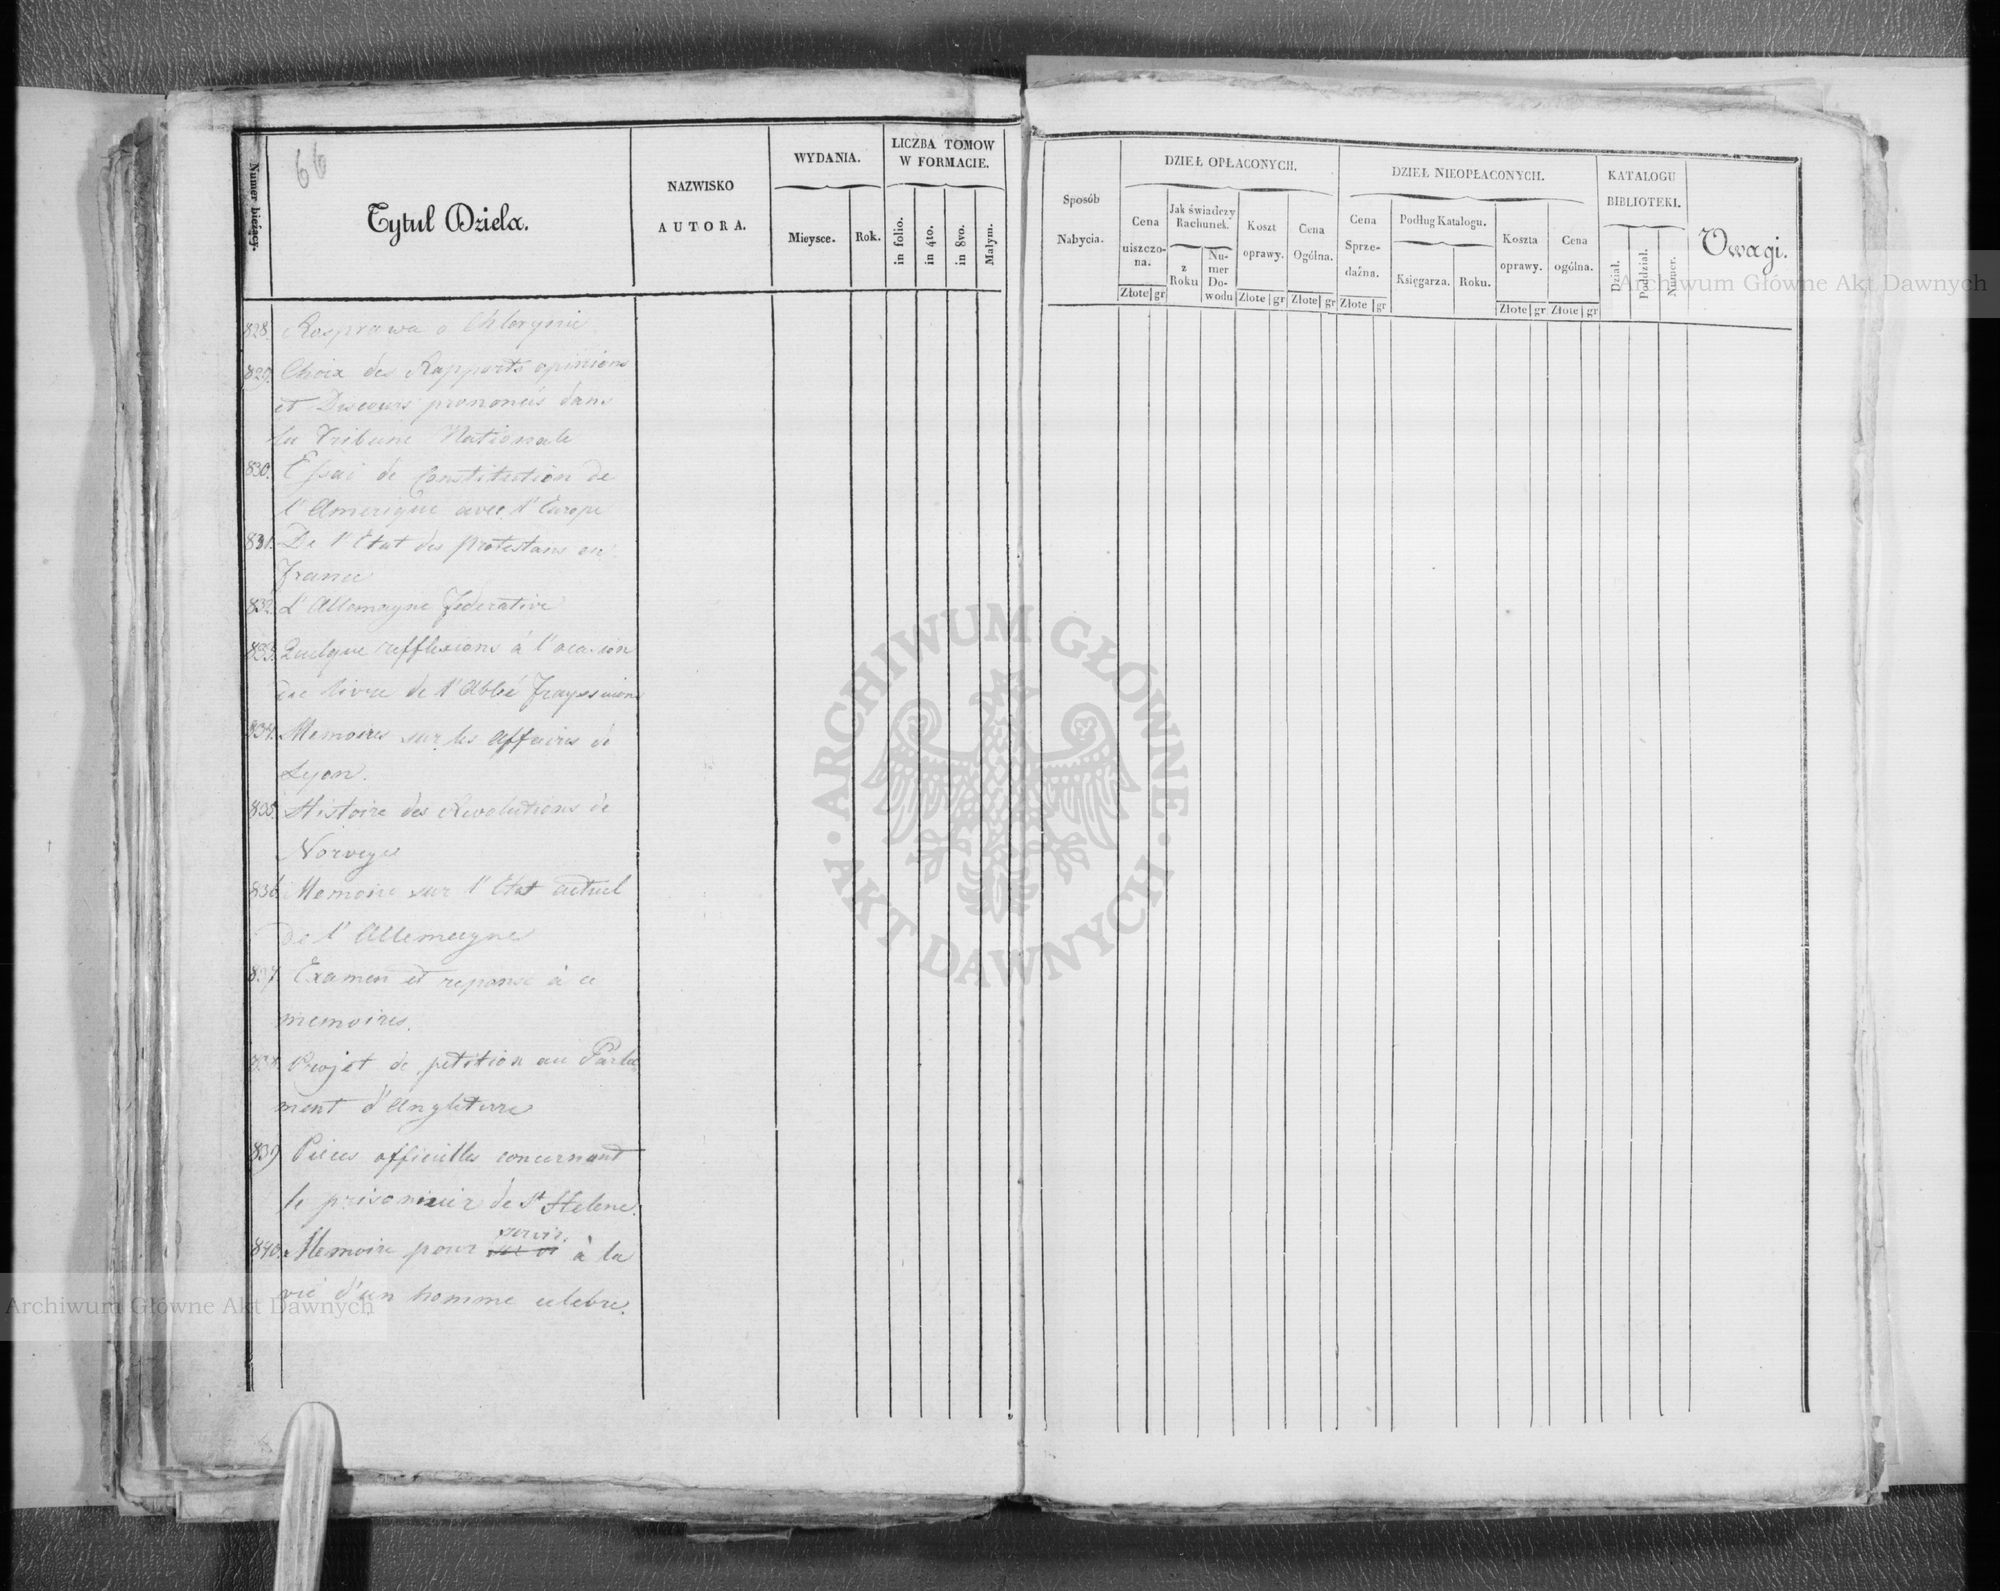 66
Numer bieżący.
Tytuł Dzieła.
NAZWISKO
AUTORA.
WYDANIA.
Mieysce.
Rok.
LICZBA TOMOW
W FORMACIE.
in folio.
in 4to.
in 8vo.
Małym.
Sposób
Nabycia.
DZIEŁ OPŁACONYCH.
Cena
uiszczo-
na.
Złote gr
Jak świadczy
Rachunek.
z
Roku
Nu-
mer
Do-
wodu
Koszt
oprawy.
Złote gr
Cena
Ogólna.
Złote gr
DZIEŁ NIEOPŁACONYCH.
Cena
Sprze-
dażna.
Złote gr
Podług Katalogu.
Księgarza.
Roku.
Koszta
oprawy.
Złote gr
Cena
ogólna.
Złote gr
KATALOGU
BIBLIOTEKI.
Dział.
Poddział.
Numer.
Uwagi.
828. Rosprawa o Chlorynie
829. Choix des Rapports opinions
et Discours prononcés dans
la Tribune Nationale
830. Essai de Constitution de
l'Amerique avec l'Europe
831. De l'Etat des protestans en
France
832. L'Allemagne Federative
833. Quelque refflexions à l'ocasion
du livre de l'Abbé Frayssinous
834. Memoires sur les affaires de
Lyon.
835. Histoire des Revolutions de
Norvege
836. Memoire sur l'Etat actuel
de l'Allemagne
837. Examen et reponse à ce
memoires.
838. Projet de petition au Parle
ment d'Angleterre
839 Pieces officielles concernant
le prisonnier de St Helene.
servir
840. Memoire pour à la
vie d'un homme celebre.
Archiwum Główne Akt Dawnych
ARCHIWUM GŁÓWNE
AKT DAWNYCH
Archiwum Główne Akt Dawnych